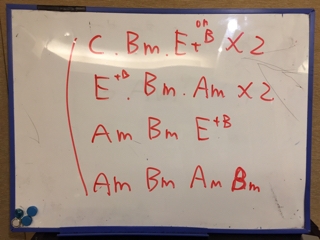 C . Bm . E+ on B × 2
E+B . Bm . Am × 2
Am Bm E+B
Am Bm Am Bm